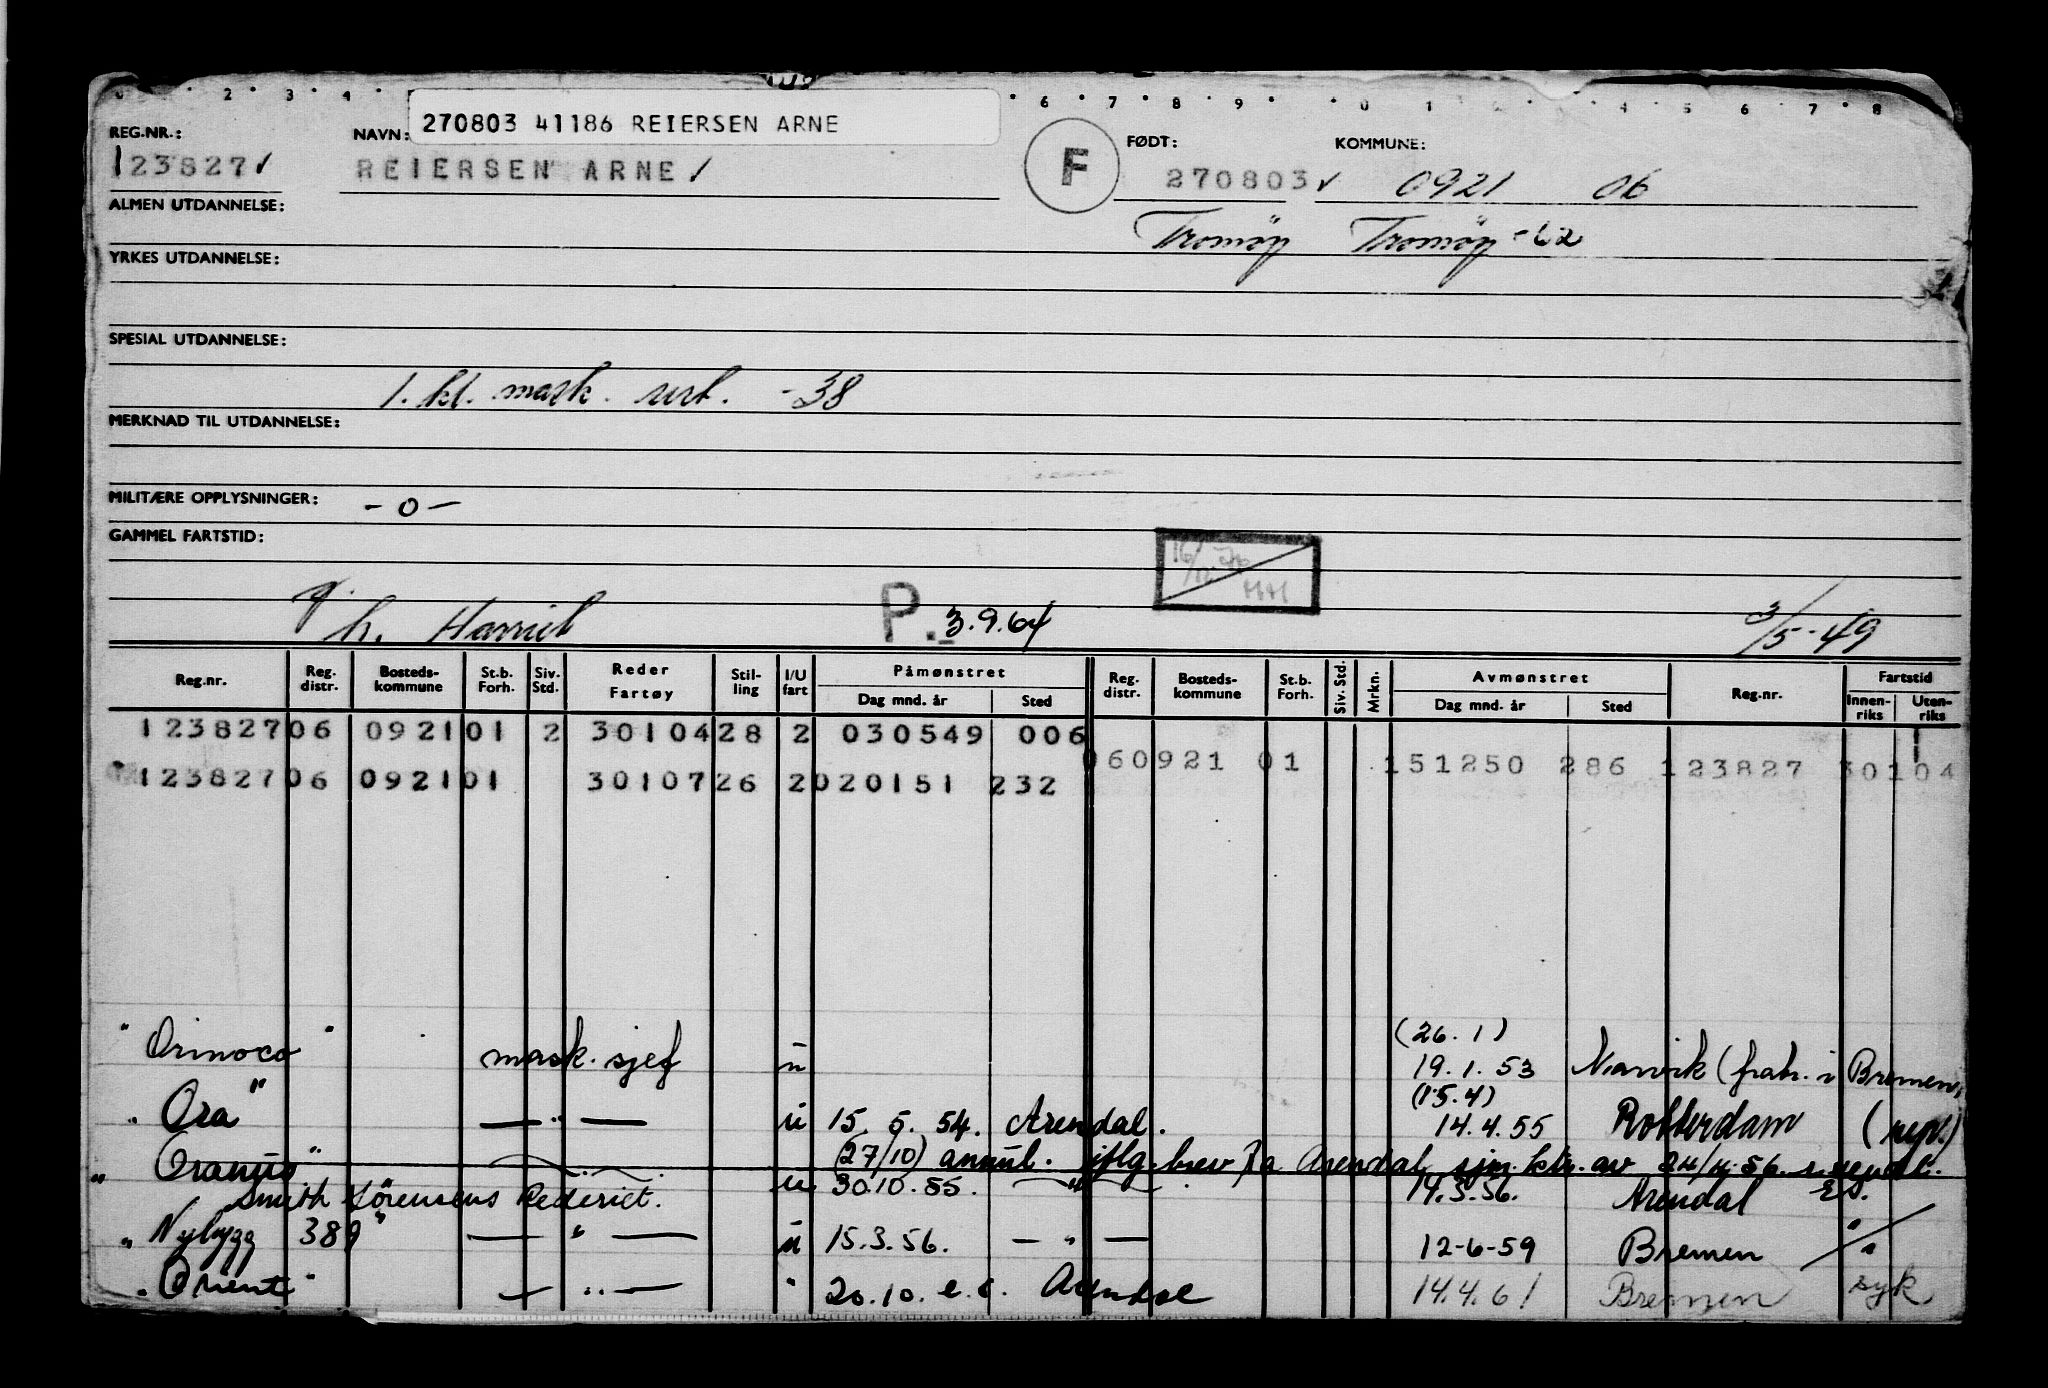 2 3 4 6 7 8 9 0 1 2 4 5 6 7 8
REG.NR.: NAVN: 270803 41186 REIERSEN ARNE FØDT: KOMMUNE:
123827 REIERSEN ARNE F 270803 0921 06
ALMEN UTDANNELSE: Tromöy Tromöy -62
YRKES UTDANNELSE:
SPESIAL UTDANNELSE:
1. kl. mask. sert. -38
MERKNAD TIL UTDANNELSE:
MILITÆRE OPPLYSNINGER: -0-
GAMMEL FARTSTID:
g/h. Harriet P. 3.9.64 3/5-49
Reg.nr. Reg. distr. Bosteds-kommune St.b. Forh. Siv. Std. Reder Fartøy Stil-ling I/U fart Påmønstret Dag mnd. år Sted Reg. distr. Bosteds-kommune St.b. Forh. Siv. Std. Mrkn. Avmønstret Dag mnd. år Sted Reg.nr. Fartstid Innen-riks Uten-riks
123827 06 0921 01 2 30104 28 2 030549 006
060921 01 151250 286 123827 30104
123827 06 0921 01 30107 26 2 020151 232
(26.1)
"Orinoco" mask. sjef u 19.1.53 Narvik (fratr. i Bremen,
(15.4)
"Ora" — " — u 15.5.54. Arendal. 14.4.55 Rotterdam (rept.)
"Oranus" (27/10) annul. iflg. brev fra Arendal sjm. ktr. av 24/4.56.
Smith Sörensens Rederiet. u 30.10.55. — " — 14.3.56. Arendal
"Nybygg 389" — " — u 15.3.56. — " — 12-6-59 Bremen
"Orient" — " — " 20.10. Arendal 14.4.61 Bremen syk.